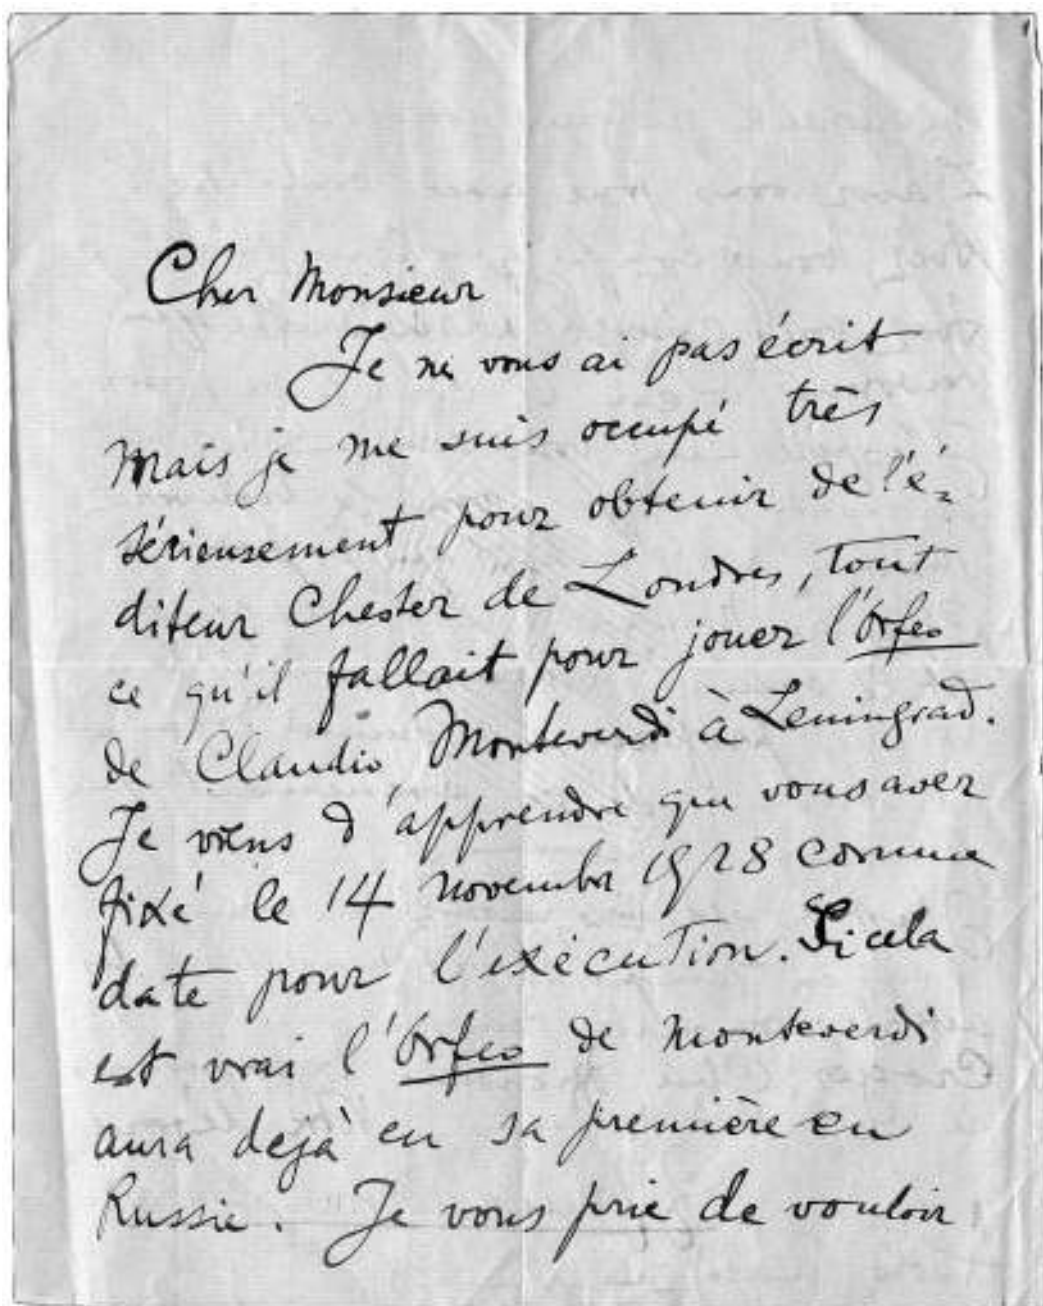 Cher Monsieur
Je ne vous ai pas écrit
mais je me suis occupé très
sérieusement pour obtenir de l'é-
diteur Chester de Londres, tout
ce qu'il fallait pour jouer l'Orfeo
de Claudio Monteverdi à Leningrad.
Je viens d'apprendre que vous avez
fixé le 14 novembre 1928 comme
date pour l'exécution. Si cela
est vrai l'Orfeo de Monteverdi
aura dejà eu sa première en
Russie. Je vous prie de vouloir